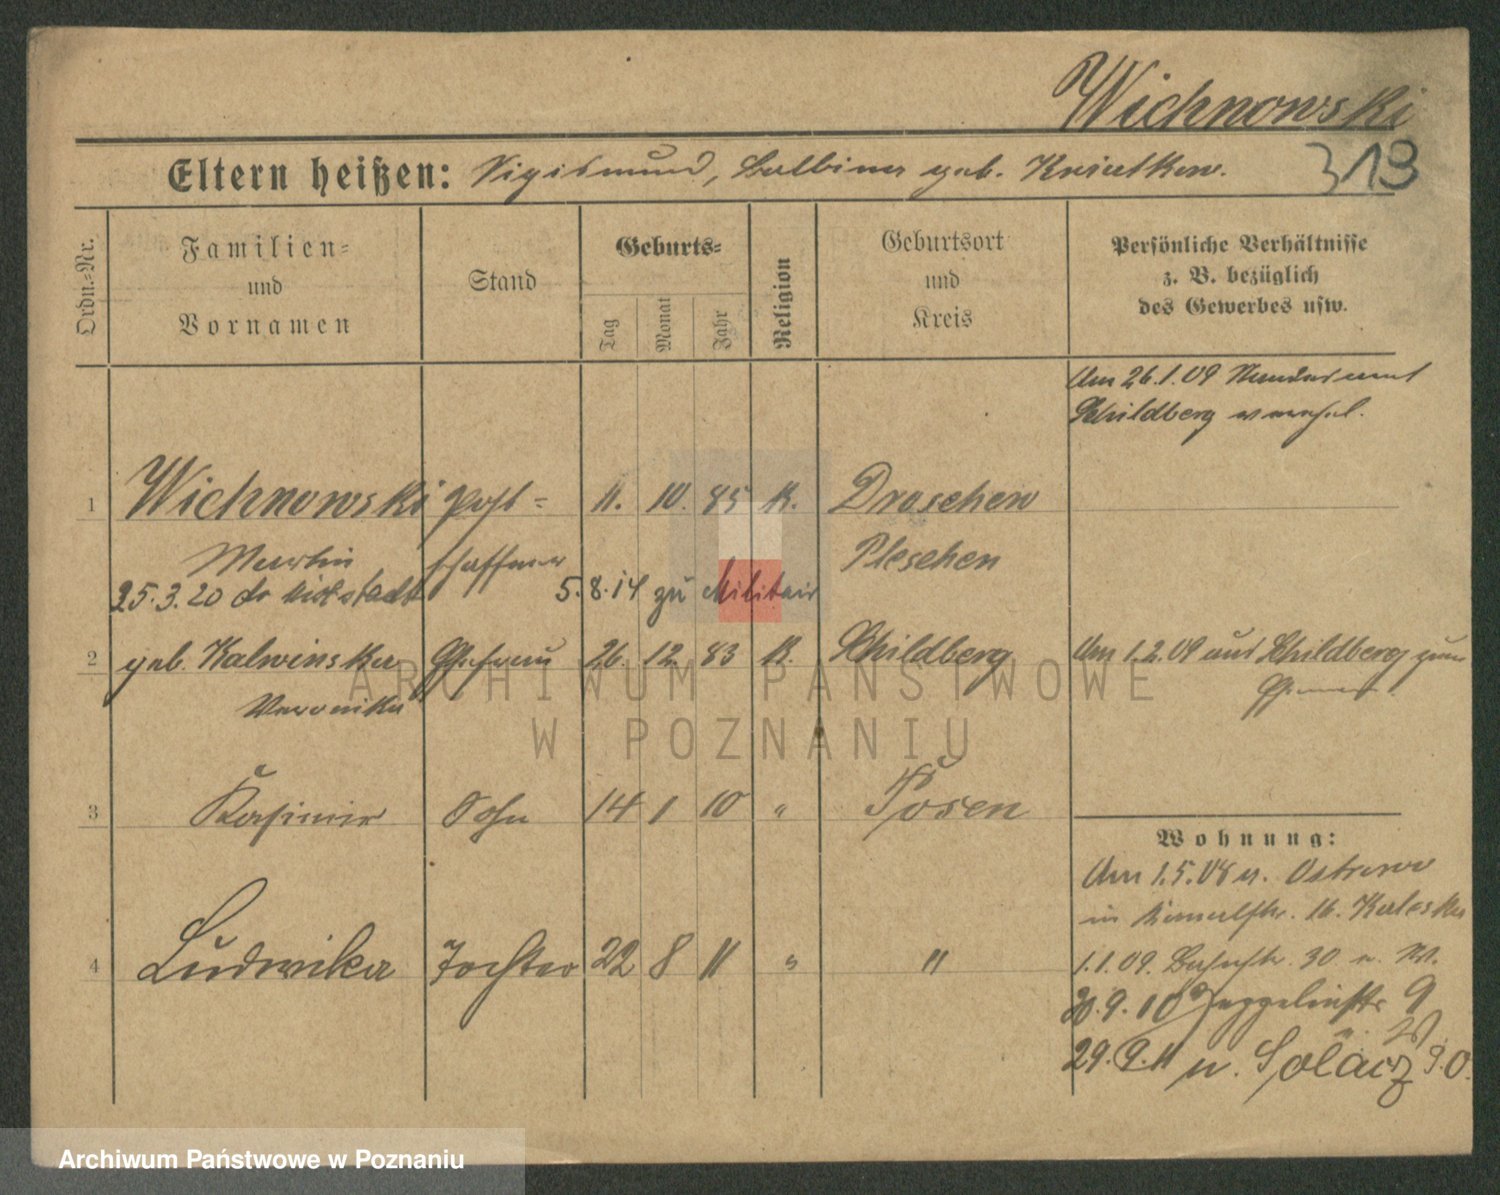 Wichnowski
Eltern heißen: Sigismund, Balbina geb. Kwiatkow.
313
Ordn.=Nr.
Familien=
und
Vornamen
Stand
Geburts=
Tag
Monat
Jahr
Religion
Geburtsort
und
Kreis
Persönliche Verhältnisse
z. B. bezüglich
des Gewerbes usw.
Am 26.1.09
Schildberg
1 Wichnowski Post= 11. 10. 85 K. Droschew
Martin schaffner Pleschen
25.3.20 5.8.14 zu Militair
2 geb. Kalwinska Ehefrau 26. 12. 83 K. Schildberg Am 1.2.09 aus Schildberg zum
Veronika
3 Kasimir Sohn 14 1 10 " Posen
Wohnung:
Am 1.5.08 n. Ostrowo
in 16. Kaleska
4 Ludwika Tochter 22 8 11 " "
1.1.09. 30
20.9.10 9
29.9.11 n. Solacz
ARCHIWUM PAŃSTWOWE
W POZNANIU
Archiwum Państwowe w Poznaniu